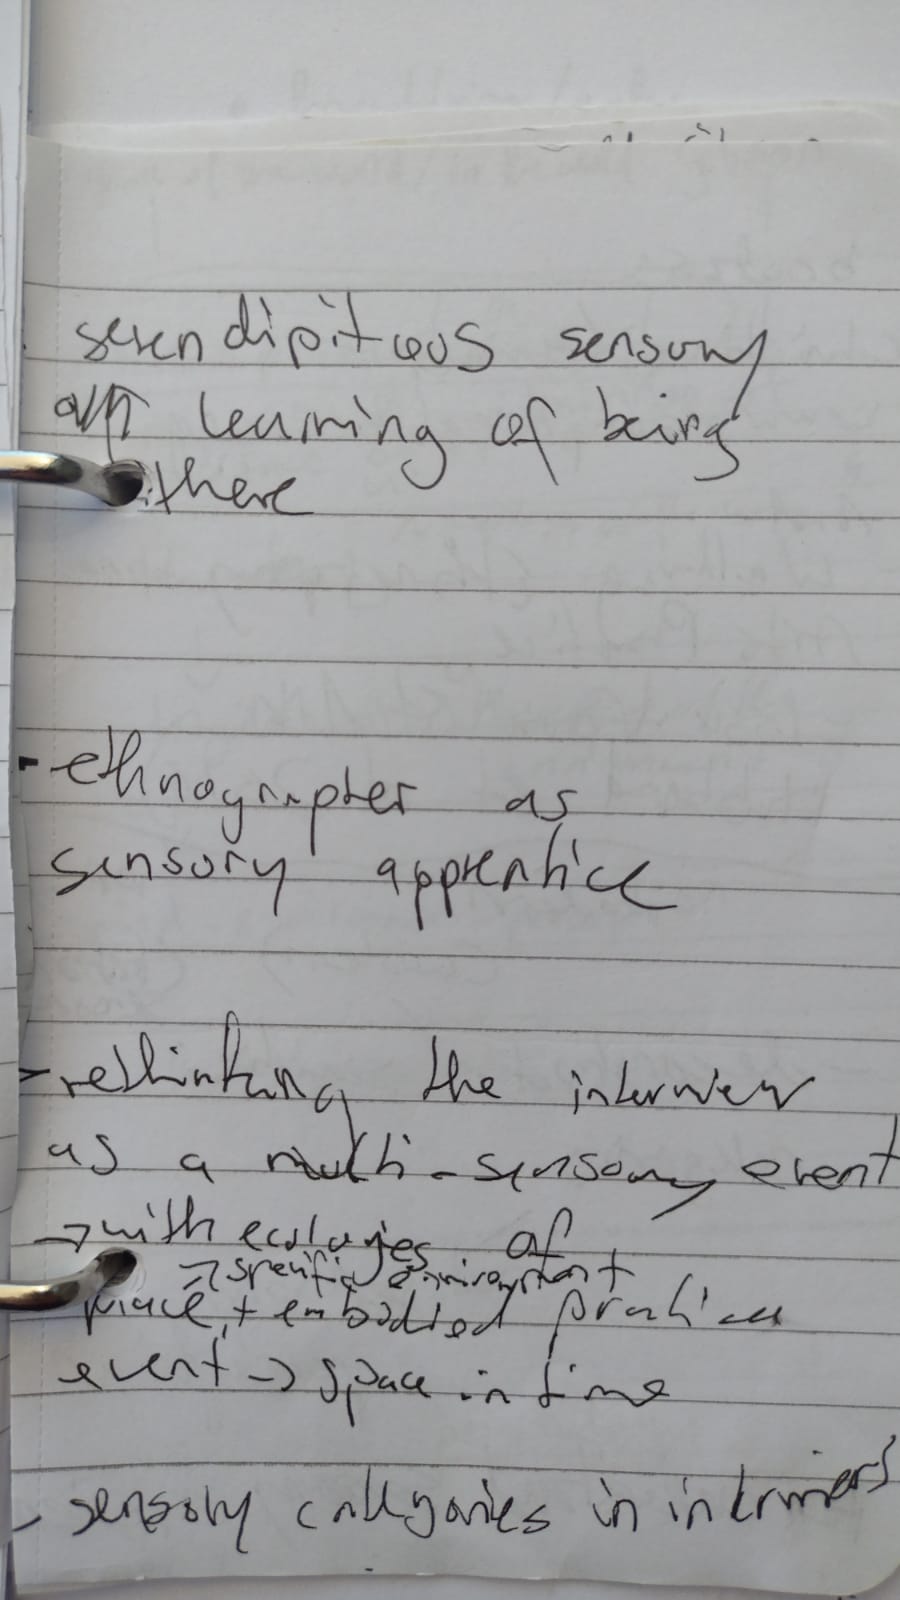 serendipitous sensory
learning of being
there
- ethnographer as
sensory apprentice
- rethinking the interview
as a multi-sensory event
→ with ecologies of
→ specific environment
place + embodied practices
event → space in time
- sensory categories in interviews